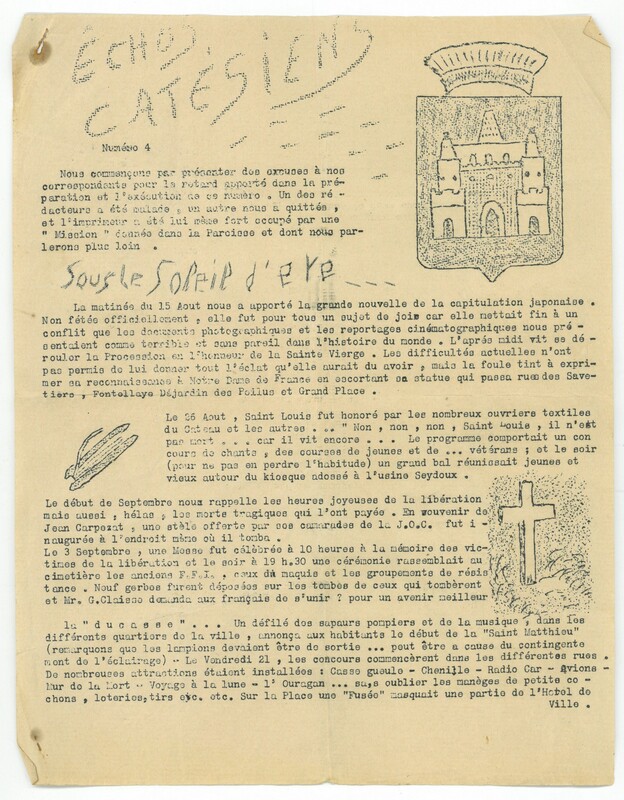 ÉCHOS
CATÉSIENS
Numéro 4
Nous commençons par présenter des excuses à nos
correspondants pour le retard apporté dans la pré-
paration et l'éxécution de ce numéro . Un des ré-
dacteurs a été malade , un autre nous a quittés ,
et l'imprimeur a été lui même fort occupé par une
" Mission " donnée dans la Paroisse et dont nous par-
lerons plus loin .
Sous le Soleil d'été ...
La matinée du 15 Aout nous a apporté la grande nouvelle de la capitulation japonaise .
Non fêtée officiellement , elle fut pour tous un sujet de joie car elle mettait fin à un
conflit que les documents photographiques et les reportages cinématographiques nous pré -
sentaient comme terrible et sans pareil dans l'histoire du monde . L'après midi vit se dé-
rouler la Procession en l'honneur de la Sainte Vierge . Les difficultés actuelles n'ont
pas permis de lui donner tout l'éclat qu'elle aurait du avoir , mais la foule tint à expri-
mer sa reconnaissance à Notre Dame de France en escortant sa statue qui passa rue des Save-
tiers , Fontellaye Déjardin des Poilus et Grand Place .
Le 26 Aout , Saint Louis fut honoré par les nombreux ouvriers textiles
du Cateau et les autres . .. " Non , non , non , Saint Louis , il n'est
pas mort . . . car il vit encore . . . Le programme comportait un con
cours de chants , des courses de jeunes et de ... vétérans ; et le soir
(pour ne pas en perdre l'habitude) un grand bal réunissait jeunes et
vieux autour du kiosque adossé à l'usine Seydoux .
Le début de Septembre nous rappelle les heures joyeuses de la libération
mais aussi , hélas , les morts tragiques qui l'ont payée . En souvenir de
Jean Carpezat , une stèle offerte par ses camarades de la J.O.C. fut i -
naugurée à l'endroit même où il tomba .
Le 3 Septembre , une Messe fut célébrée à 10 heures à la mémoire des vic-
times de la libération et le soir à 19 h.30 une cérémonie rassemblait au
cimetière les anciens F.F.I. , ceux du maquis et les groupements de résis
tance . Neuf gerbes furent déposées sur les tombes de ceux qui tombèrent
et Mr. G.Claisse demanda aux français de s'unir ? pour un avenir meilleur
la " ducasse " . . . Un défilé des sapeurs pompiers et de la musique , dans les
différents quartiers de la ville , annonça aux habitants le début de la "Saint Matthieu"
(remarquons que les lampions devaient être de sortie ... peut être a cause du contingente
ment de l'éclairage) - Le Vendredi 21 , les concours commencèrent dans les différentes rues .
De nombreuses attractions étaient installées : Casse gueule - Chenille - Radio Car - Avions -
Mur de la Mort - Voyage à la lune - l' Ouragan ... sans oublier les manèges de petits co-
chons , loteries,tirs etc. etc. Sur la Place une "Fusée" masquait une partie de l'Hotel de
Ville .